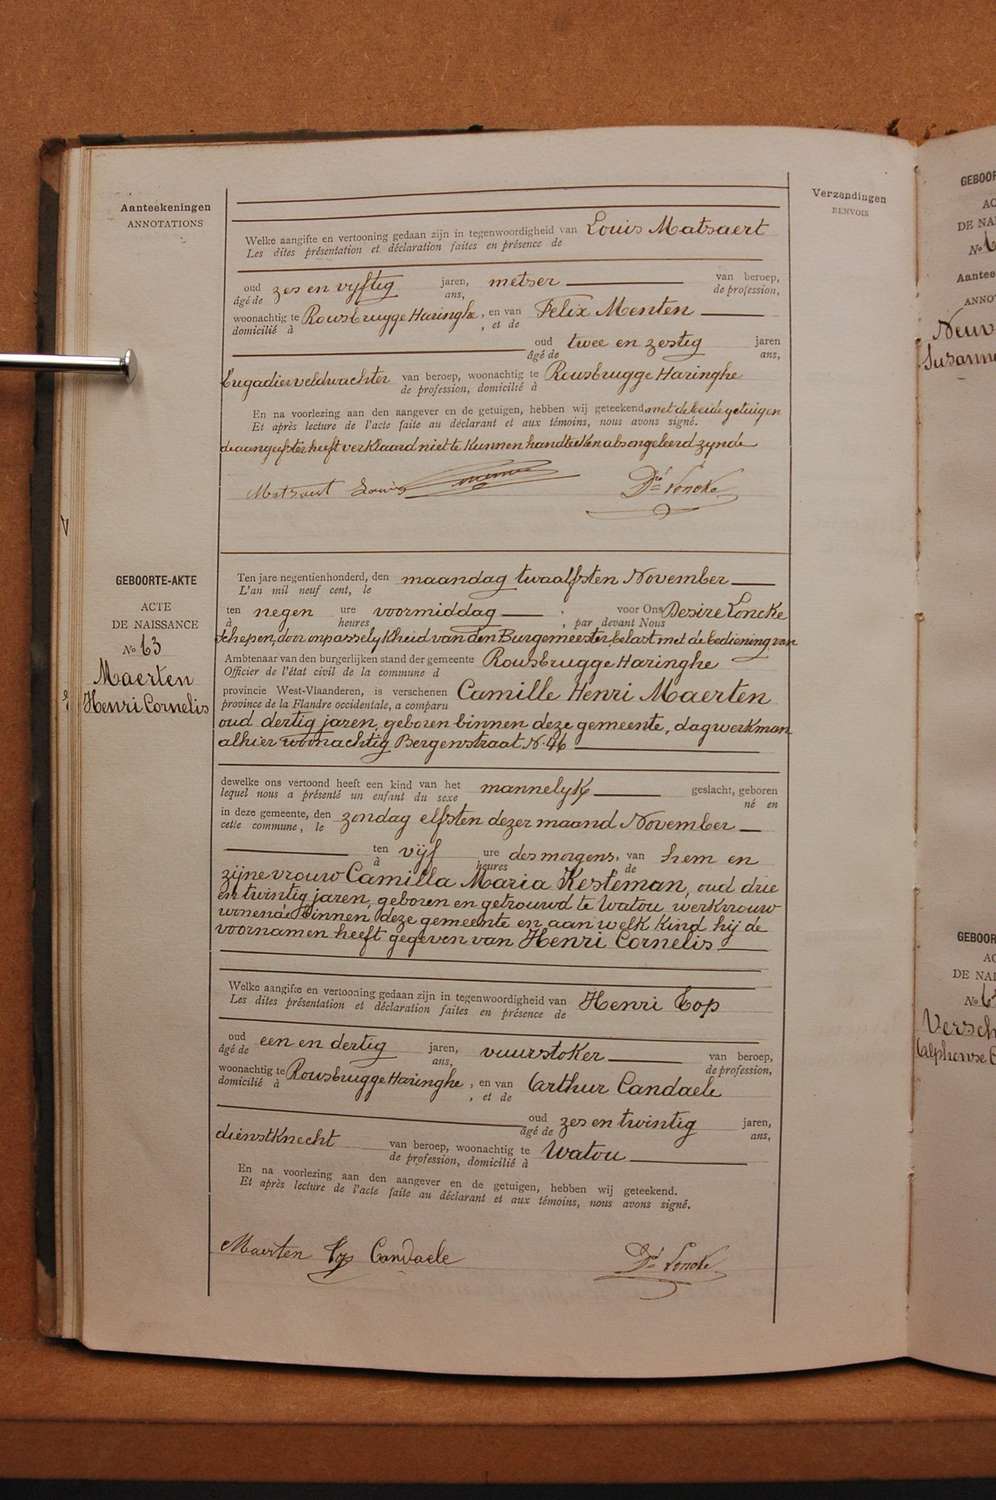 Aanteekeningen
ANNOTATIONS
Verzendingen
RENVOIS
Welke aangifte en vertooning gedaan zijn in tegenwoordigheid van Louis Matsaert
Les dites présentation et déclaration faites en présence de
oud zes en vyftig jaren, metser van beroep,
âgé de ans, de profession,
woonachtig te Rousbrugge Haringhe, en van Felix Menten
domicilié à , et de
oud twee en zestig jaren
âgé de ans,
veldwachter van beroep, woonachtig te Rousbrugge Haringhe
de profession, domicilié à
En na voorlezing aan den aangever en de getuigen, hebben wij geteekend met de beide getuigen
Et après lecture de l'acte faite au déclarant et aux témoins, nous avons signé.
de aangeefster heeft verklaard niet te kunnen handteeken als ongeleerd zynde
Matsaert Louis Dré Loncke
GEBOORTE-AKTE
ACTE
DE NAISSANCE
No 63
Maerten
Henri Cornelis
Ten jare negentienhonderd, den maandag twaalfsten November
L'an mil neuf cent, le
ten negen ure voormiddag ; voor Ons Desire Loncke
à heures , par devant Nous
schepen, door onpasselykheid van den Burgemeester, belast met de bediening van
Ambtenaar van den burgerlijken stand der gemeente Rousbrugge Haringhe
Officier de l'état civil de la commune d
provincie West-Vlaanderen, is verschenen Camille Henri Maerten
province de la Flandre occidentale, a comparu
oud dertig jaren, geboren binnen deze gemeente, dagwerkman
alhier woonachtig Bergenstraat No 46
dewelke ons vertoond heeft een kind van het mannelyk geslacht, geboren
lequel nous a présenté un enfant du sexe né en
in deze gemeente, den zondag elfsten dezer maand November
cette commune, le
ten vijf ure des morgens, van hem en
à heures de
zijne vrouw Camilla Maria Kesteman, oud drie
en twintig jaren, geboren en getrouwd te Watou werkvrouw
wonende binnen deze gemeente en aan welk kind hij de
voornamen heeft gegeven van Henri Cornelis
Welke aangifte en vertooning gedaan zijn in tegenwoordigheid van Henri Top
Les dites présentation et déclaration faites en présence de
oud een en dertig jaren, vuurstoker van beroep,
âgé de ans, de profession,
woonachtig te Rousbrugge Haringhe, en van Arthur Candaele
domicilié à , et de
oud zes en twintig jaren,
âgé de ans,
dienstknecht van beroep, woonachtig te Watou
de profession, domicilié à
En na voorlezing aan den aangever en de getuigen, hebben wij geteekend.
Et après lecture de l'acte faite au déclarant et aux témoins, nous avons signé.
Maerten Top Candaele Dré Loncke